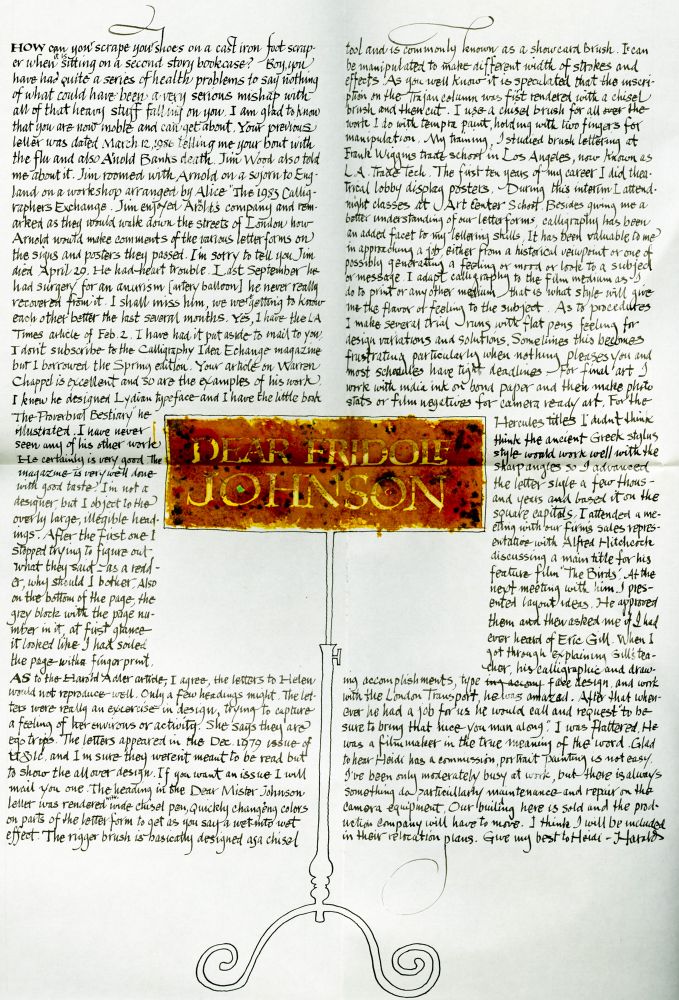 HOW can you scrape you shoes on a cast iron foot scrap-
er when it is sitting on a second story bookcase? Boy, you
have had quite a series of health problems to say nothing
of what could have been a very serious mishap with
all of that heavy stuff falling on you. I am glad to know
that you are now moble and can get about. Your previous
letter was dated March 12, 1986 telling me your bout with
the flu and also Anold Banks death. Jim Wood also told
me about it. Jim roomed with Arnold on a sojorn to Eng-
land on a workshop arranged by Alice "The 1983 Callig-
raphers Exchange. Jim enjoyed Arold's company and rem-
arked as they would walk down the streets of London how
Arnold would make comments of the various letterforms on
the signs and posters they passed. I'm sorry to tell you Jim
died April 29. He had heart trouble. Last September he
had surgery for an anurism [artery balloon] he never really
recovered from it. I shall miss him, we were getting to know
each other better the last several months. Yes, I have the L.A
Times article of Feb. 2. I have had it put aside to mail to you.
I don't subscribe to the Calligraphy Idea Echange magazine
but I borrowed the Spring edition. Your article on Warren
Chappel is excellent and so are the examples of his work.
I knew he designed Lydian typeface and I have the little book
The Proverbial Bestiary he
illustrated. I have never
seen any of his other work
He certainly is very good. The
magazine is very well done
with good taste. I'm not a
designer, but I object to the
overly large, illegible head-
ings. After the first one I
stopped trying to figure out
what they said - as a redd-
er, why should I bother. Also
on the bottom of the page, the
grey block with the page nu-
mber in it, at first glance
it looked like I had soiled
the page with a fingorprint.
AS to the Harold Adler article, I agree, the letters to Helen
would not reproduce well. Only a few headings might. The let-
ters were really an excercise in design, trying to capture
a feeling of her environs or activity. She says they are
ego trips. The letters appeared in the Dec. 1979 issue of
U&lc. and I'm sure they weren't meant to be read but
to show the all over design. If you want an issue I will
mail you one. The heading in the Dear Mister Johnson
letter was rendered with wide chisel pen, quickly changing colors
on parts of the letter form to get as you say a wet into wet
effect. The rigger brush is basically designed as a chisel
DEAR FRIDOLF
JOHNSON
tool and is commonly known as a showcard brush. It can
be manipulated to make different width of strokes and
effects. As you well know it is speculated that the inscri-
ption on the Trajan column was fist rendered with a chisel
brush and then cut. I use a chisel brush for all over the
work I do with tempra paint, holding with two fingers for
manipulation. My training, I studied brush lettering at
Frank Wiggins trade school in Los Angeles, now known as
L.A. Trade Tech. The first ten years of my career I did thea-
trical lobby display posters. During this interim I attend-
night classes at Art Center School. Besides giving me a
better understanding of our letterforms, calligraphy has been
an added facet to my lettering skills. It has been valuable to me
in approaching a job, either from a historical viewpoint or one of
possibly generating a feeling or mood or look to a subject
or message. I adapt calligraphy to the film medium as I
do to print or any other medium, that is what style will give
me the flavor or feeling to the subject. As to procedures
I make several trial runs with flat pens feeling for
design variations and solutions. Sometimes this becomes
frustrating particularly when nothing pleases you and
most schedules have tight deadlines. For final art I
work with india ink on bond paper and then make photo
stats or film negatives for camera ready art. For the
Hercules titles I didn't think
think the ancient Greek stylus
style would work well with the
sharp angles so I advanced
the letter style a few thous-
and years and based it on the
square capitals. I attended a me-
eting with our firm's sales repres-
entative with Alfred Hitchcock
discussing a main title for his
feature film "The Birds". At the
next meeting with him I pres-
ented layout ideas. He approved
them and then asked me if I had
ever heard of Eric Gill. When I
got through explaining Gill's tea-
cher, his calligraphic and draw-
ing accomplishments, type face design, and work
with the London Transport, he was amazed. After that when-
ever he had a job for us he would call and request "to be
sure to bring that nice you man along". I was flattered. He
was a filmmaker in the true meaning of the word. Glad
to hear Heidi has a commission, portrait painting is not easy.
I've been only moderately busy at work, but there is always
something do particullarly maintenance and repair on the
camera equipment. Our builing here is sold and the prod-
uction company will have to move. I think I will be included
in their relocation plans. Give my best to Heidi - Harald